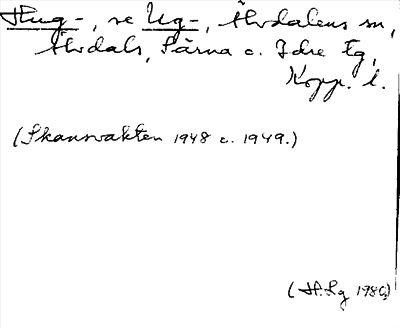 Hug-, se Ug-, Älvdalens sn,
Älvdals, Särna o. Idre tg,
Kopp. l.
(Skansvakten 1948 o. 1949.)
(H.Lg 1980)